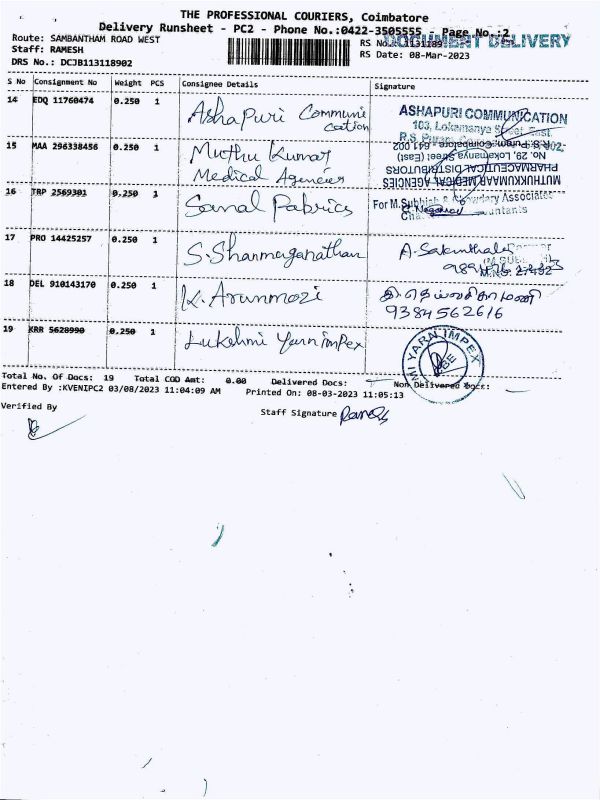 THE PROFESSIONAL COURIERS, Coimbatore
Delivery Runsheet - PC2 - Phone No.:0422-3505555 - Page No.:2
DOCUMENT DELIVERY
Route: SAMBANTHAM ROAD WEST
RS No.: 1131189
Staff: RAMESH
RS Date: 08-Mar-2023
DRS No.: DCJB113118902
S No Consignment No Weight PCS Consignee Details Signature
14 EDQ 11760474 0.250 1 Ashapuri Communi
cation
ASHAPURI COMMUNICATION
103, Lokamanya Street, East
15 MAA 296338456 0.250 1 Muthu Kumar
Medical Agencies
MUTHUKUMAAR MEDICAL AGENCIES
PHARMACEUTICAL DISTRIBUTORS
No. 29, Lokamanya Street (East)
R.S. Puram, Coimbatore - 641 002
16 TRP 2569301 0.250 1 Sonal Fabrics
For M.Subbiah & Associates
17 PRO 14425257 0.250 1 S. Shanmuganathan
A. Sakunthala
18 DEL 910143170 0.250 1 K. Arunmozi
9384562616
19 KRR 5628990 0.250 1 Lukshmi Yarn impex
MI YARN IMPEX
CBE
Total No. Of Docs: 19 Total COD Amt: 0.00 Delivered Docs: Non Delivered Docs:
Entered By :KVENIPC2 03/08/2023 11:04:09 AM Printed On: 08-03-2023 11:05:13
Verified By
Staff Signature Ramesh